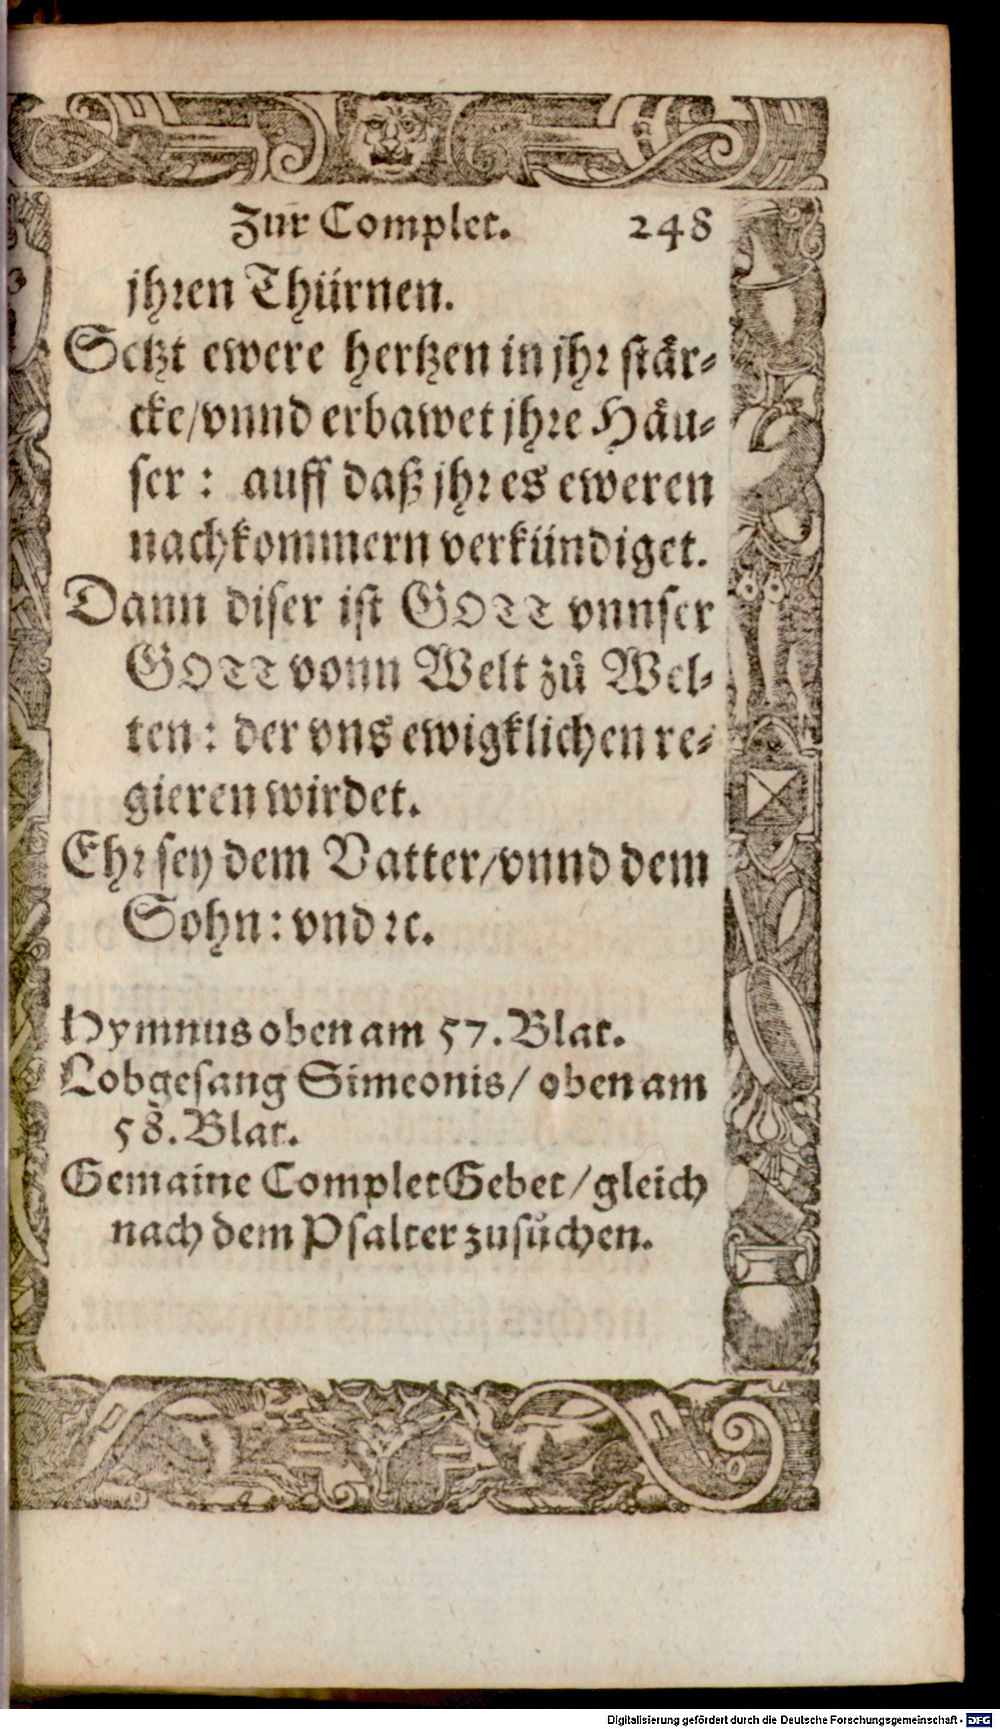 Zur Complet. 248
jhren Thürnen.
Setzt ewere hertzen in jhr stär-
cke/vnnd erbawet jhre Häu-
ser: auff daß jhr es eweren
nachkommern verkündiget.
Dann diser ist GOTT vnnser
GOTT vonn Welt zů Wel-
ten: der vns ewigklichen re-
gieren wirdet.
Ehr sey dem Vatter/vnnd dem
Sohn: vnd ꝛc.
Hymnus oben am 57. Blat.
Lobgesang Simeonis/ oben am
58. Blat.
Gemaine Complet Gebet/gleich
nach dem Psalter zusůchen.
Digitalisierung gefördert durch die Deutsche Forschungsgemeinschaft - DFG